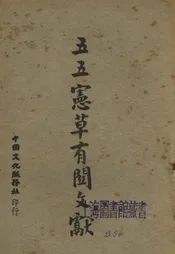 五五憲草有関文獻
中國文化服務社印行
上海圖書館藏書